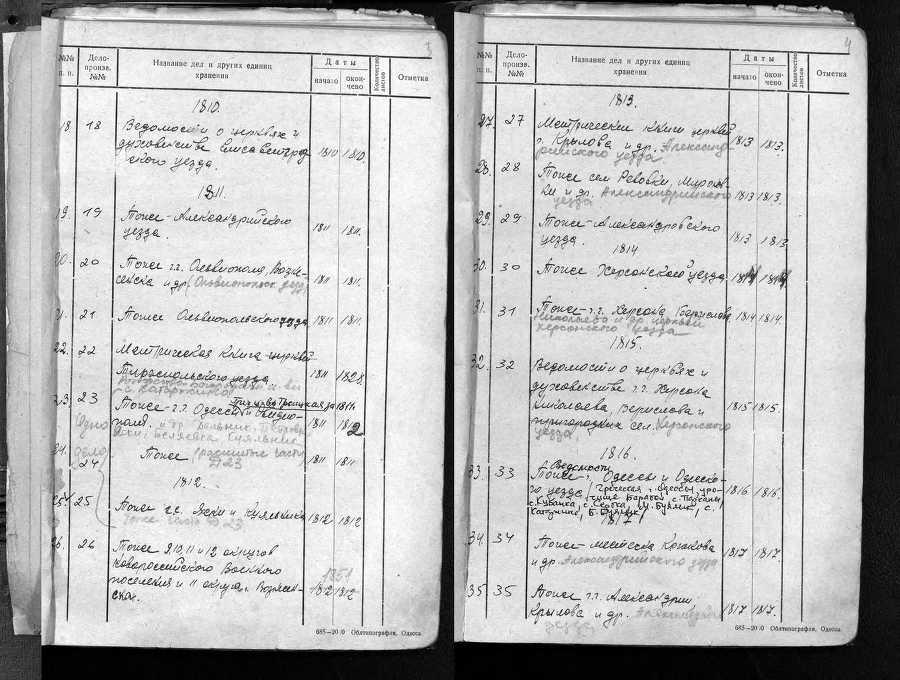 3
№№
п. п.
Дело-
произв.
№№
Название дел и других единиц
хранения
Даты
начато
окон-
чено
Количество
листов
Отметка
1810.
18 18 Ведомости о церквях и
духовенстве Елисаветград
ского уезда. 1810 1810
1811.
19. 19 Тоже-Александрийского
уезда. 1811 1811.
20. 20 Тоже г.г. Ольвиополя, Возне-
сенска и др. (Ольвиопольск. уезд) 1811 1811.
21. 21 Тоже Ольвиопольского уезда 1811 1811.
22. 22 Метрическая книга церквей
Тираспольского уезда 1811 1828.
23. 23 Тоже-г.г. Одессы и Овидио-
поля. и др. 1811 1812
(Одно
дело)
24. 24 Тоже (расшитые часть
Д 23 1811 1811.
1812.
25. 25 Тоже с.с. Яски и Куяльника 1812 1812
Тоже часть Д 23
26. 26 Тоже 9,10,11 и 12 округов
Новороссийского Военного
поселения и 11 округа г. Вознесен-
ска. 1812 1812
1851
685—20 0 Облтипография, Одесса
4
№№
п. п.
Дело-
произв.
№№
Название дел и других единиц
хранения
Даты
начато
окон-
чено
Количество
листов
Отметка
1813.
27. 27 Метрические книги церквей
г. Крылова и др. Александ-
рийского уезда. 1813 1813.
28. 28 Тоже сел Ревовки, Миронов-
ки и др. Александрийского
уезда 1813 1813.
29. 29 Тоже-Александровского
уезда. 1813 1813
1814
30. 30 Тоже Херсонского уезда 1814 1814
31. 31 Тоже-г.г. Херсона, Берислава
Николаева и др. церквей
Херсонского уезда 1814 1814.
1815.
32. 32 Ведомости о церквях и
духовенстве г.г. Херсона
Николаева, Берислава и
пригородних сел. Херсонского
уезда. 1815 1815.
1816.
33. 33 Ведомости
Тоже-г. Одессы и Одесско-
го уезда (Греческая г. Одессы, уро-
чище Барабой, с.
с. Кубанка, с. Севки, м. Буялык, с.
Катаржино, Б. Буялык) 1816 1816.
1817
34. 34 Тоже-местечка Крюкова
и др. Александрийского уезда 1817 1817.
35. 35 Тоже г.г. Александрии
Крылова и др. Александрий
уезда 1817 1817.
685—20 0 Облтипография, Одесса